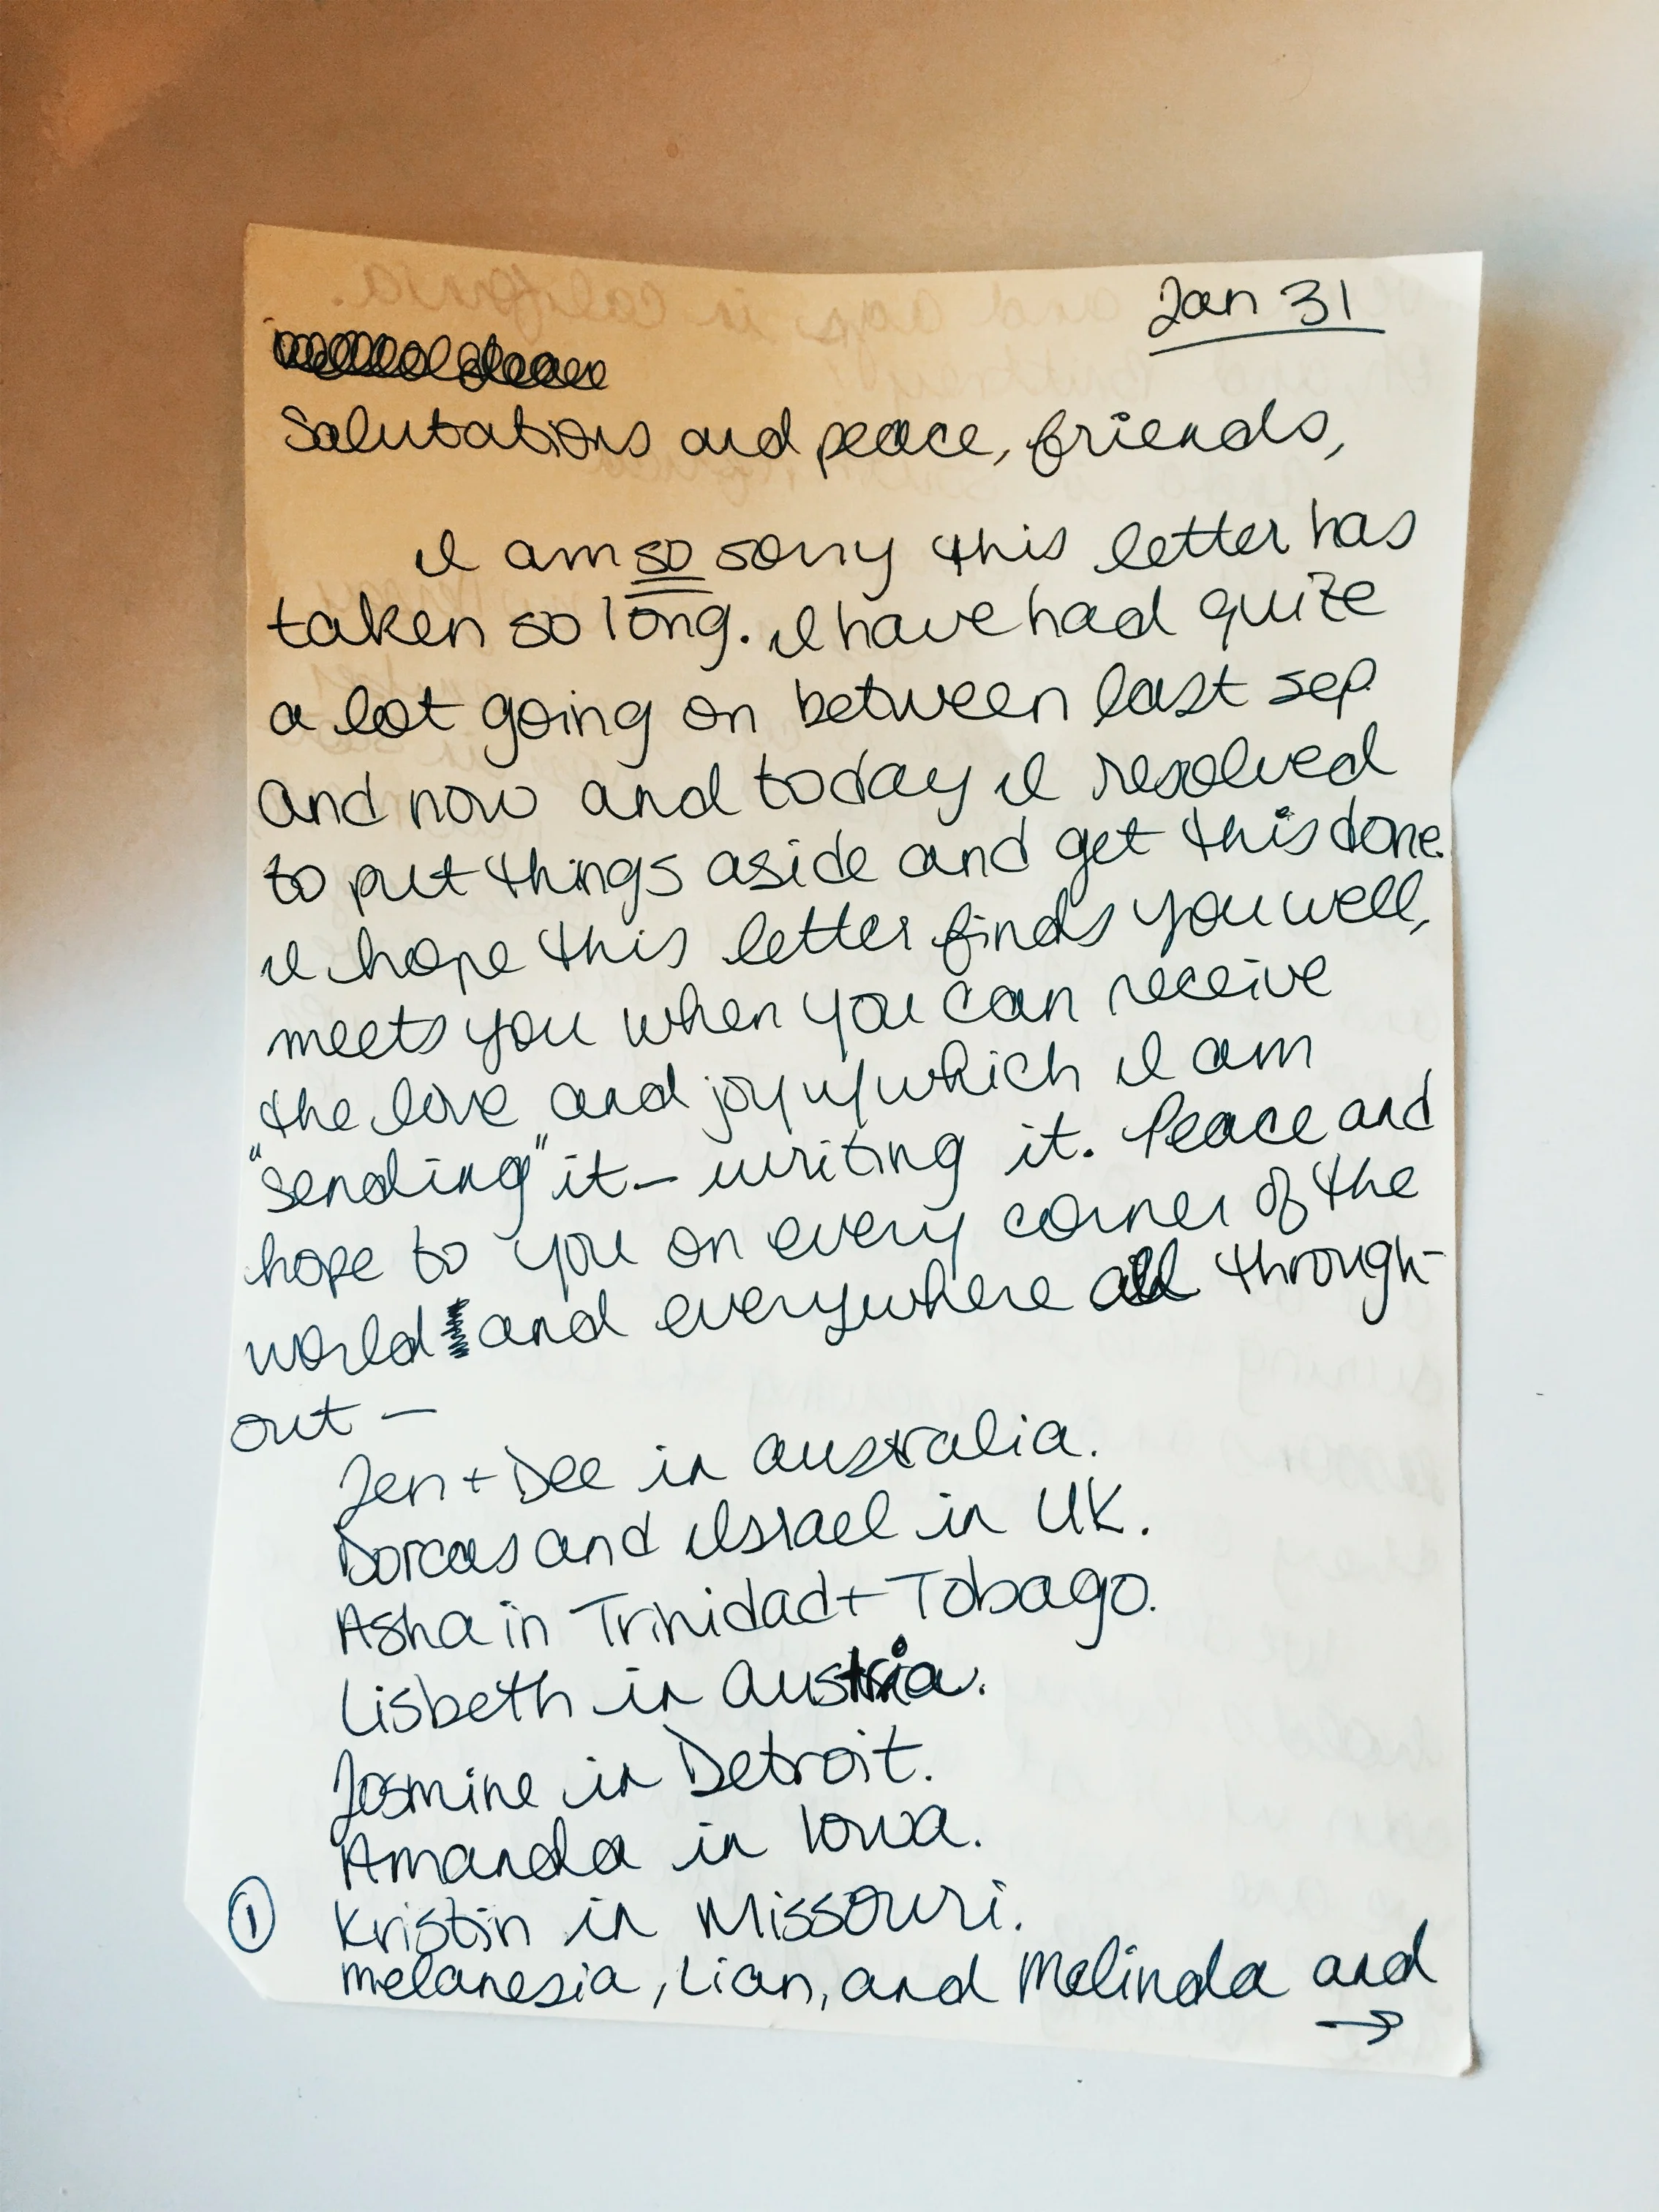 Jan 31
Salutations and peace, friends,
I am so sorry this letter has
taken so long. I have had quite
a lot going on between last sep
and now and today I resolved
to put things aside and get this done.
I hope this letter finds you well,
meets you when you can receive
the love and joy w/ which I am
"sending" it — writing it. Peace and
hope to you on every corner of the
world and everywhere all through-
out —
Jen + Dee in australia.
Dorcas and Israel in UK.
Asha in Trinidad + Tobago.
Lisbeth in austria.
Jasmine in Detroit.
Amanda in Iowa.
① Kristin in Missouri.
melanesia, Lian, and Melinda and
→